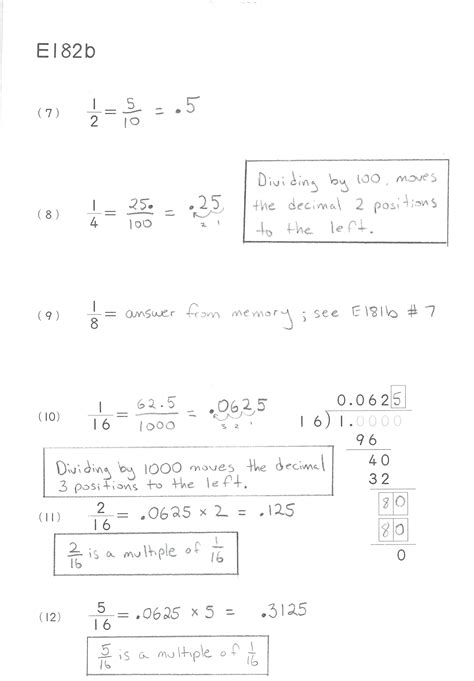 E182b
(7) 1/2 = 5/10 = .5
Dividing by 100, moves
the decimal 2 positions
to the left.
(8) 1/4 = 25./100 = .25
2 1
(9) 1/8 = answer from memory; see E181b # 7
(10) 1/16 = 62.5/1000 = .0625
3 2 1
0.0625
16)1.0000
96
40
32
80
80
0
Dividing by 1000 moves the decimal
3 positions to the left.
(11) 2/16 = .0625 × 2 = .125
2/16 is a multiple of 1/16
(12) 5/16 = .0625 × 5 = .3125
5/16 is a multiple of 1/16